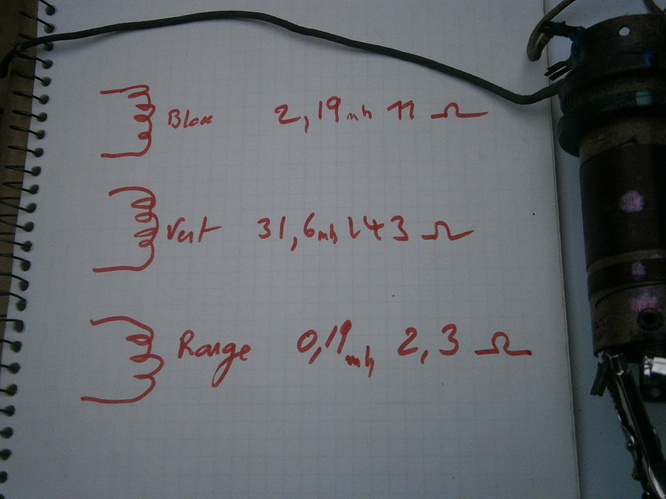 2,19mh 11 Ω
Vert 31,6mh 143 Ω
Rouge 0,19mh 2,3 Ω